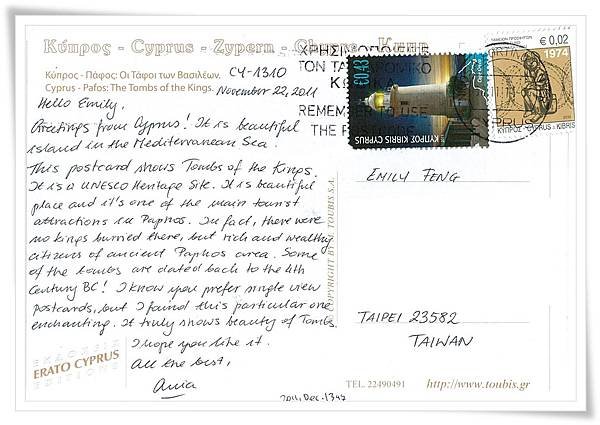 Κύπρος - Cyprus - Zypern - Chypre - Кипр
Κύπρος - Πάφος: Οι Τάφοι των Βασιλέων.
Cyprus - Pafos: The Tombs of the Kings.
CY-1310
November 22, 2011
Hello Emily,
Greetings from Cyprus! It is beautiful
island in the Mediterranean Sea.
This postcard shows Tombs of the Kings.
It is a UNESCO Heritage Site. It is beautiful
place and it's one of the main tourist
attractions in Paphos. In fact, there were
no kings burried there, but rich and wealthy
citizens of ancient Paphos area. Some
of the tombs are dated back to the 4th
Century BC! I know you prefer single view
postcards, but I found this particular one
enchanting. It truly shows beauty of Tombs.
I hope you like it.
All the best,
Ania
ERATO CYPRUS
COPYRIGHT BY M. TOUBIS S.A.
ΧΡΗΣΙΜΟΠΟΙ
ΤΟΝ ΤΑΧΥΔΡΟΜΙΚΟ
REMEMBER TO USE
THE
€0,43
ΚΥΠΡΟΣ KIBRIS CYPRUS
€ 0,02
1974
ΚΥΠΡΟΣ · CYPRUS · KIBRIS
EMILY FENG
TAIPEI 23582
TAIWAN
TEL. 22490491
http://www.toubis.gr
2011, Dec. 13